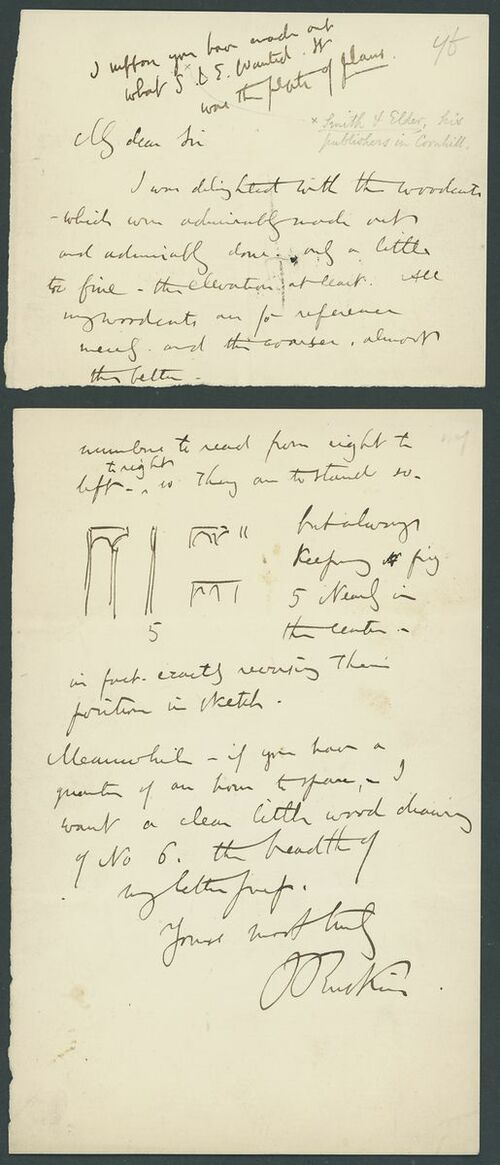 I suppose you have made out
what S & E. wanted. It
was the plate of plans.
46
× Smith & Elder, his
publishers in Cornhill.
My dear Sir
I was delighted with the woodcuts
- which were admirably made out
and admirably done. only a little
too fine - the elevation at least. All
my woodcuts are for reference
merely. and the coarser, almost
the better -
numbers to read from right to
to right
left - , so They are to stand so -
but always
Keeping fig
5 Nearly in
the center -
5
in fact. exactly reversing Their
position in sketch.
Meanwhile - if you have a
quarter of an hour to spare, - I
want a clear little wood drawing
of No 6. the breadth of
my letterpress.
Yours most truly
J Ruskin.